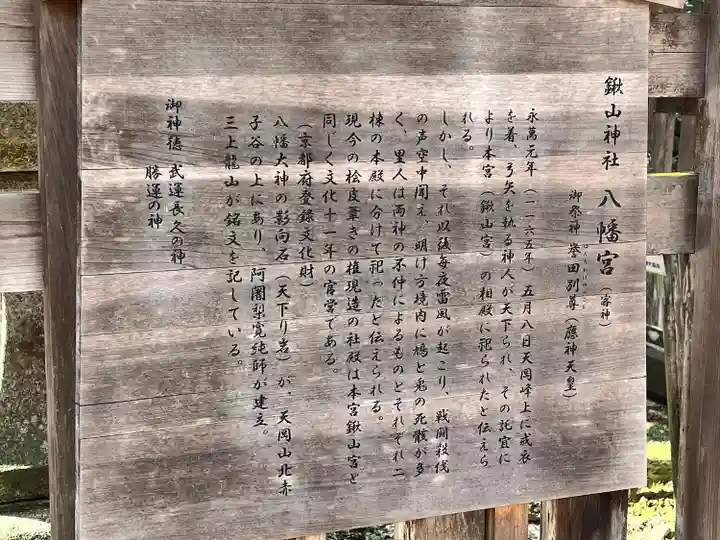 鍬山神社 八幡宮（客神）
御祭神 誉田別尊（應神天皇）
永萬元年（一一六五年）五月八日天岡峰上に戎衣
を着、弓矢を執る神人が天下られ、その託宣に
より本宮（鍬山宮）の相殿に祀られたと伝えら
れる。
しかし、それ以後毎夜雷風が起こり、戦闘殺伐
の声空中聞え、明け方境内に鳩と兎の死骸が多
く、里人は両神の不仲によるものとそれぞれ二
棟の本殿に分けて祀ったと伝えられる。
現今の桧皮葺きの権現造の社殿は本宮鍬山宮と
同じく文化十一年の官営である。
（京都府登録文化財）
八幡大神の影向石（天下り岩）が、天岡山北赤
子谷の上にあり、阿闍梨寛純師が建立。
三上龍山が銘文を記している。
御神徳 武運長久の神
勝運の神